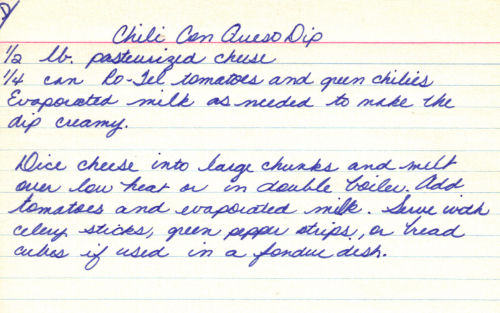 Chili Con Queso Dip
1/2 lb. pasteurized cheese
1/4 can Ro-Tel tomatoes and green chilies
Evaporated milk as needed to make the
dip creamy.
Dice cheese into large chunks and melt
over low heat or in double boiler. Add
tomatoes and evaporated milk. Serve with
celery sticks, green pepper strips, or bread
cubes if used in a fondue dish.